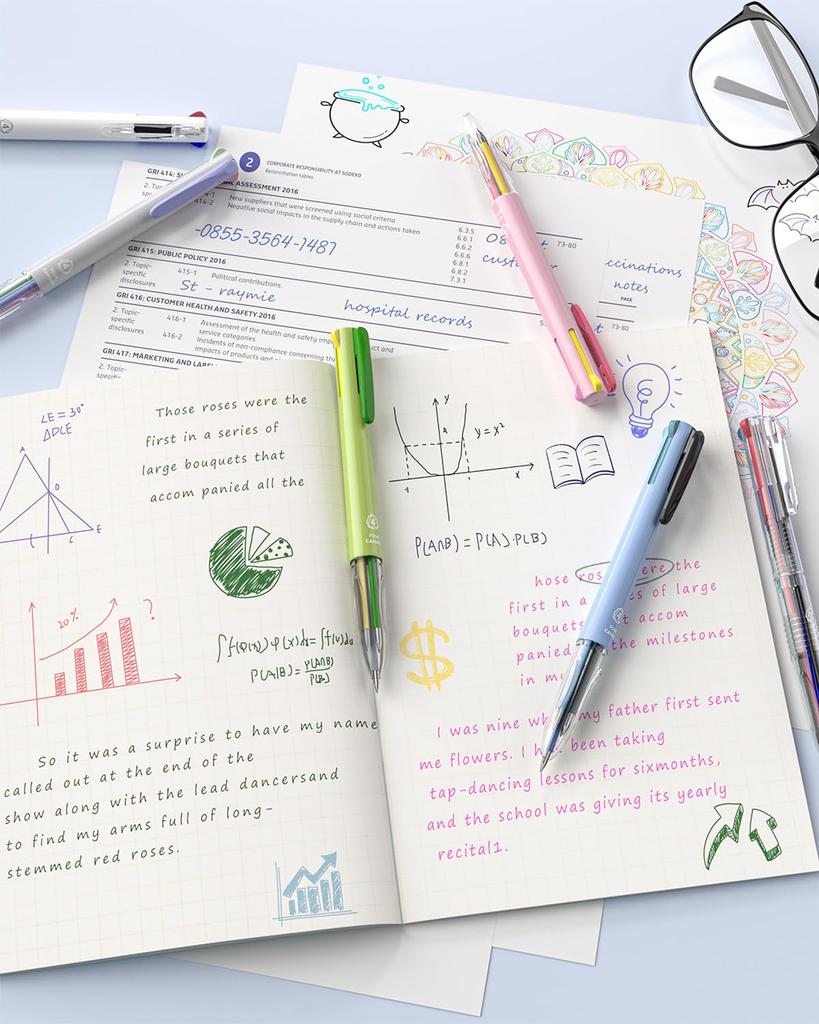 2
CORPORATE RESPONSIBILITY AT SODEXO
Reconciliation tables
ASSESSMENT 2016
414-2
New suppliers that were screened using social criteria
Negative social impacts in the supply chain and actions taken
-0855-3564-1487
6.3.5
6.6.1
6.6.2
6.6.6
6.8.1
6.8.2
7.3.1
73-80
GRI 415: PUBLIC POLICY 2016
2. Topic-
specific
disclosures
415-1
Political contributions.
St - raymie
hospital records
ccinations
notes
PAGE
GRI 416: CUSTOMER HEALTH AND SAFETY 2016
2. Topic-
specific
disclosures
416-1
416-2
Assessment of the health and safety
service categories
Incidents of non-compliance concerning the
impacts of products
73-80
GRI 417: MARKETING AND
2. Topic-
∠E = 30°
△DCE
A
D
C
E
Those roses were the
first in a series of
large bouquets that
accom panied all the
20%
?
∫f(φ(x))φ'(x)dx = ∫f(u)du
P(A|B) = P(A∩B)
P(B)
So it was a surprise to have my name
called out at the end of the
show along with the lead dancersand
to find my arms full of long-
stemmed red roses.
y
4
y = x²
x
P(A∩B) = P(A)·P(B)
hose ere the
first in a es of large
accom
panied the milestones
in
$
I was nine my father first sent
me flowers. I been taking
tap-dancing lessons for sixmonths,
and the school was giving its yearly
recital1.
4